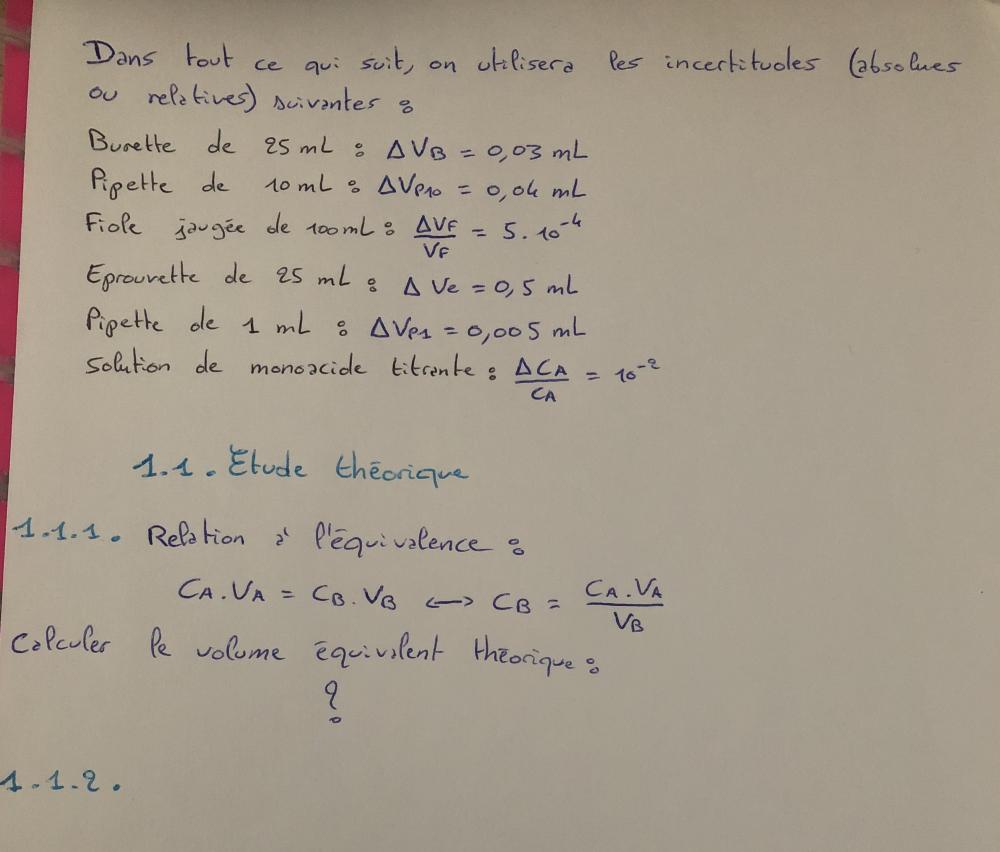 Dans tout ce qui suit, on utilisera les incertitudes (absolues
ou relatives) suivantes :
Burette de 25 mL : ΔVB = 0,03 mL
Pipette de 10 mL : ΔVP10 = 0,04 mL
Fiole jaugée de 100 mL : ΔVF/VF = 5.10⁻⁴
Eprouvette de 25 mL : ΔVe = 0,5 mL
Pipette de 1 mL : ΔVP1 = 0,005 mL
Solution de monoacide titrante : ΔCA/CA = 10⁻²
1.1. Etude théorique
1.1.1. Relation à l'équivalence :
CA.VA = CB.VB <-> CB = CA.VA/VB
Calculer le volume équivalent théorique :
?
1.1.2.